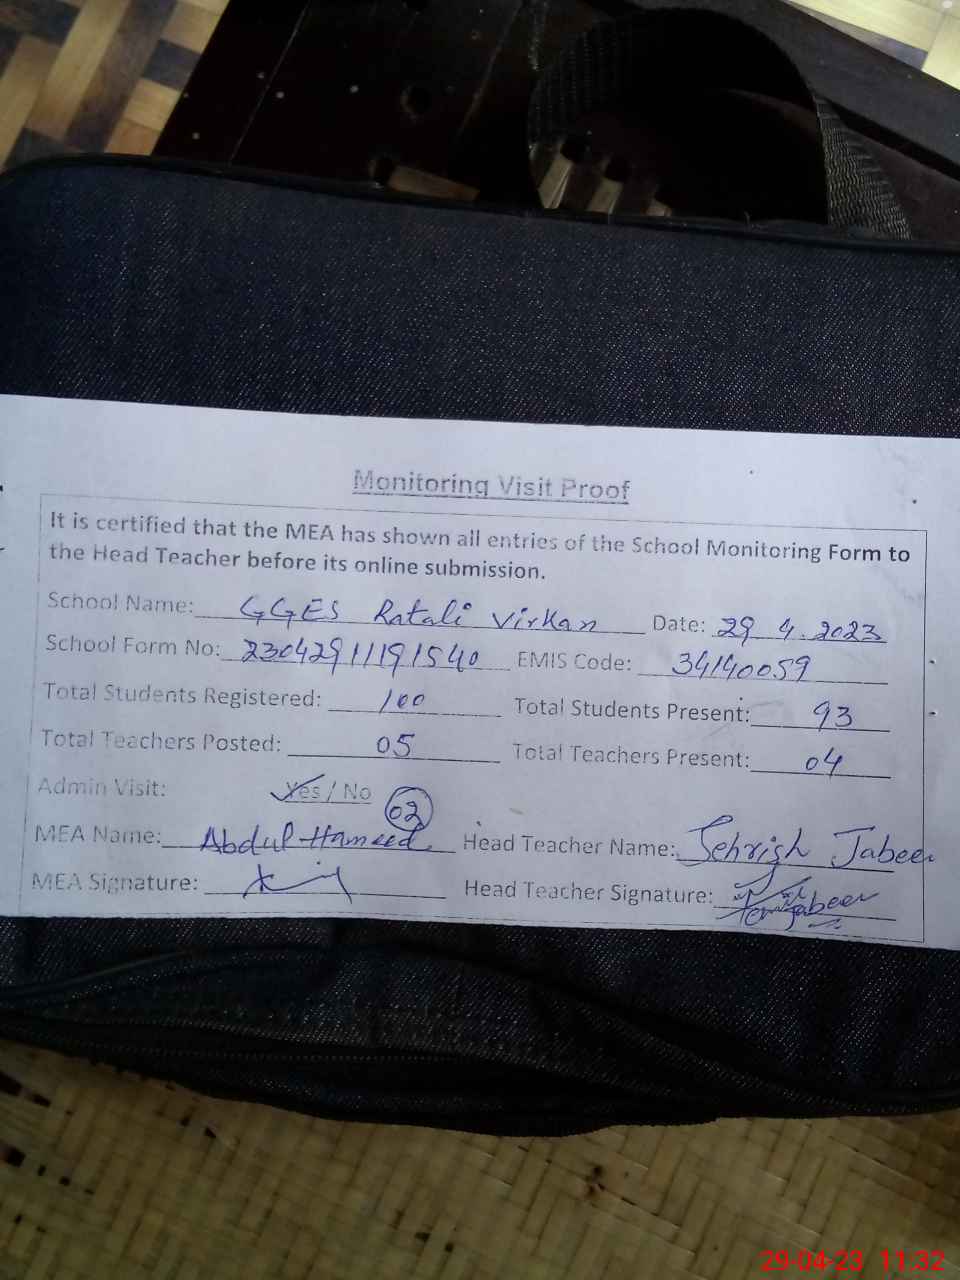 Monitoring Visit Proof
It is certified that the MEA has shown all entries of the School Monitoring Form to
the Head Teacher before its online submission.
School Name: GGES Ratali Virkan Date: 29 4.2023
School Form No: 2304291191540 EMIS Code: 34140059
Total Students Registered: 100 Total Students Present: 93
Total Teachers Posted: 05 Total Teachers Present: 04
Admin Visit: Yes / No 02
MEA Name: Abdul Hameed Head Teacher Name: Sehrish Jabeen
MEA Signature: Head Teacher Signature: Jabeen
29-04-23 11:32